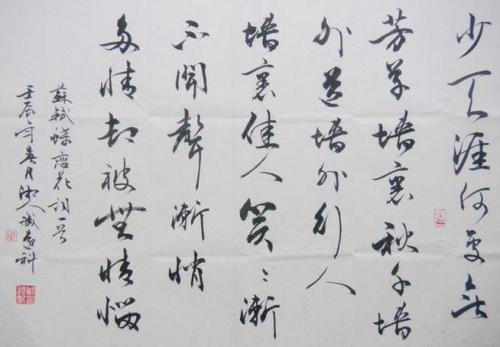 少天涯何處无
芳草墙裏秋千墙
外道墙外行人
墙裏佳人笑〻漸
不聞聲漸悄
多情却被無情惱
蘇軾蝶恋花詞一首
壬辰年春月